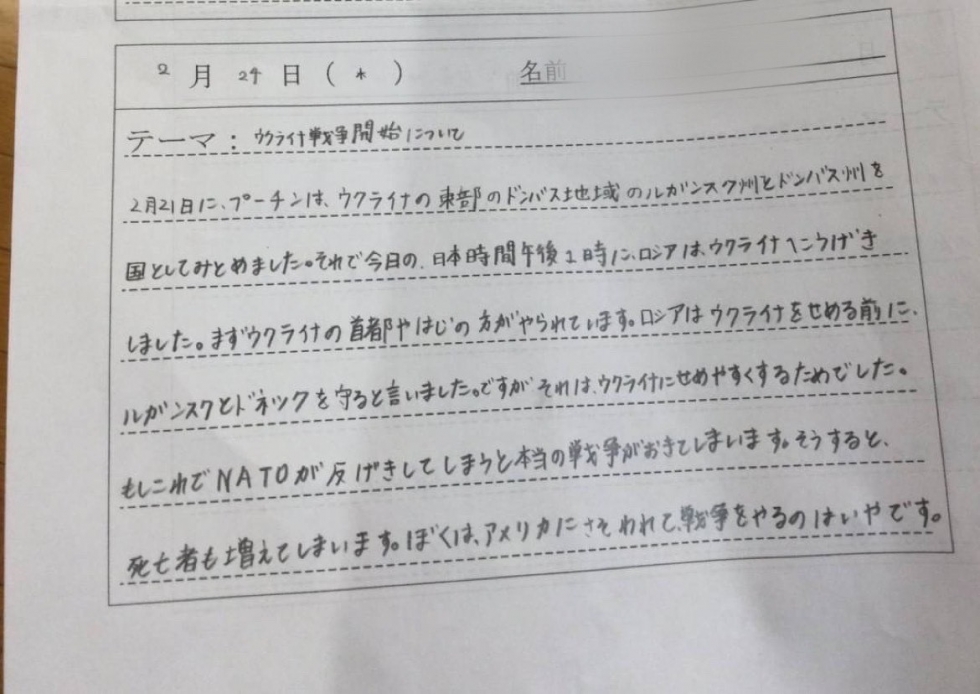 2月24日(木) 名前
テーマ:ウクライナ戦争開始について
2月21日に、プーチンは、ウクライナの東部のドンバス地域のルガンスク州とドンバス州を
国としてみとめました。それで今日の、日本時間午後1時に、ロシアは、ウクライナへこうげき
しました。まずウクライナの首都やはじの方がやられています。ロシアはウクライナをせめる前に、
ルガンスクとドネックを守ると言いました。ですがそれは、ウクライナにせめやすくするためでした。
もしこれでNATOが反げきしてしまうと本当の戦争がおきてしまいます。そうすると、
死亡者も増えてしまいます。ぼくは、アメリカにさそわれて、戦争をやるのはいやです。